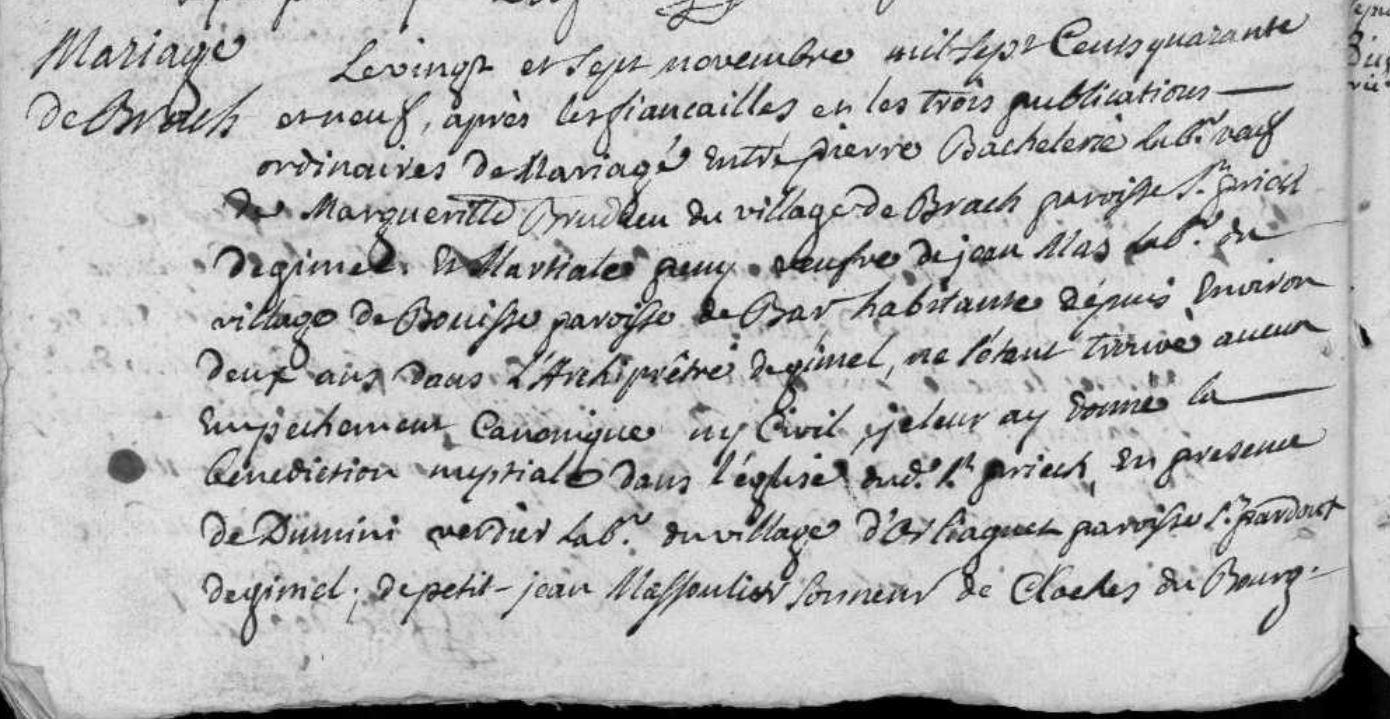 Mariage
de Brach
Le vingt et sept novembre mil sept Cents quarante
et neuf, après les fiancailles et les trois publications
ordinaires de Mariage Entre pierre Bachelerie lab.r veuf
de Margueritte du village de Brach paroisse S.t priech
de gimel. Et Martiale peuy veufve de jean Mas lab.r du
village de Bouisse paroisse de Bar habitante dépuis Environ
deux ans dans l'Archiprêtré de gimel, ne s'étant trouvé aucun
Empechement Canonique ny Civil, je leur ay donné la
bénédiction nuptiale dans l'église dud. S.t priech, En presence
de Dumini verdier lab.r du village d'Orliaguet paroisse S.t pardoux
de gimel; de petit-jean Massoulier sonneur de Cloches du Bourg